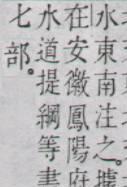 水東南注之。據
在安徽鳳陽府
水道提綱等書
七部。